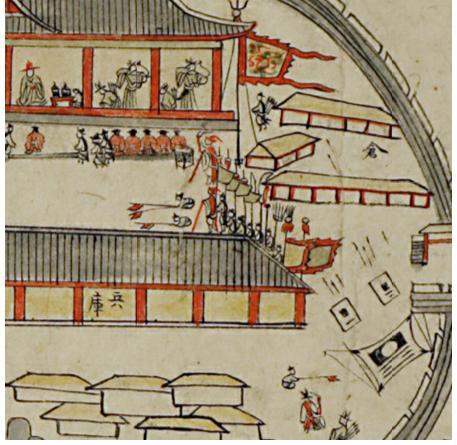 倉
兵庫